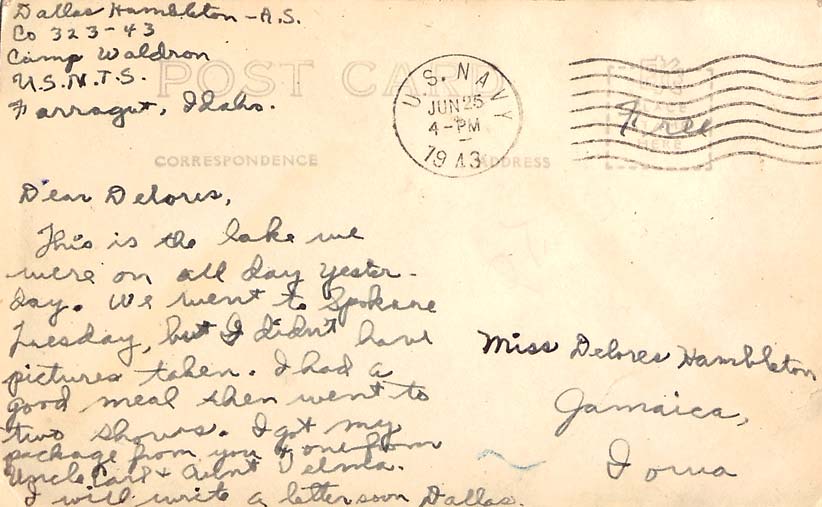 Dallas Hambleton - A.S.
Co 323-43
Camp Waldron
U.S.N.T.S.
Farragut, Idaho.
POST CARD
U.S. NAVY
JUN 25
4-PM
1943
PLACE
HERE
Free
CORRESPONDENCE
ADDRESS
Dear Delores,
This is the lake we
were on all day yester-
day. We went to Spokane
Tuesday, but I didn't have
pictures taken. I had a
good meal then went to
two shows. I got my
package from you & one from
Uncle Carl & Aunt Velma.
I will write a letter soon Dallas.
Miss Delores Hambleton
Jamaica,
Iowa